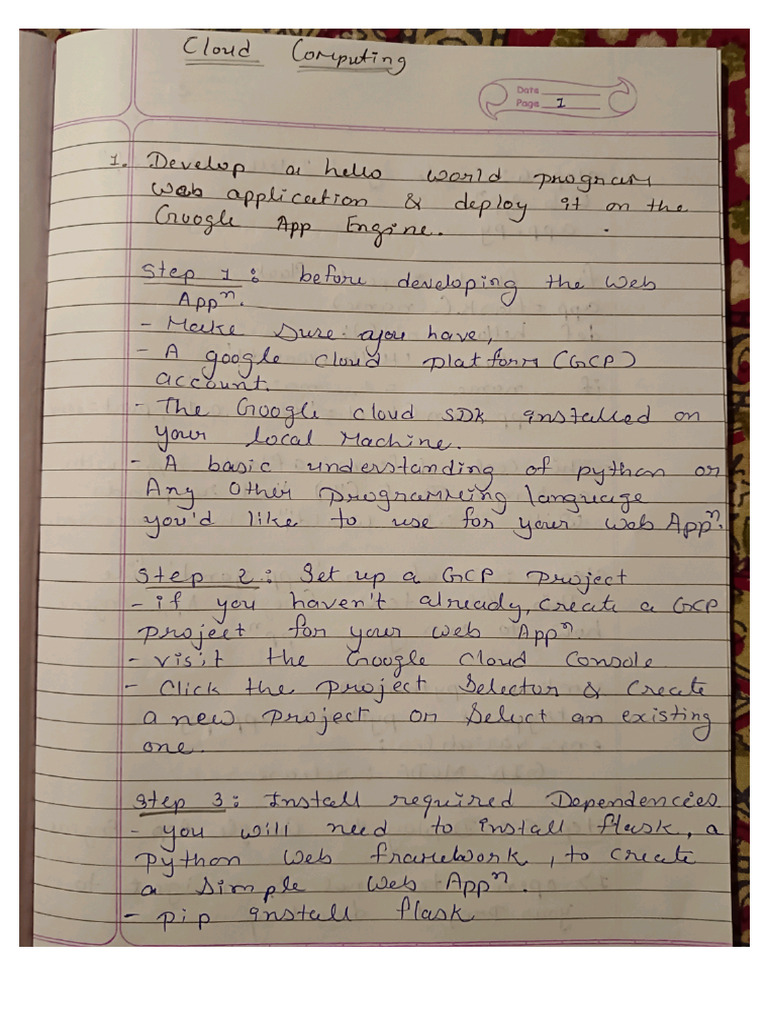 Cloud Computing
Date
Page 1
1. Develop a hello world program
web application & deploy it on the
Google App Engine.
Step 1: before developing the Web
Appⁿ.
- Make sure you have,
- A google cloud platform (GCP)
account.
- The Google cloud SDK installed on
your local Machine.
- A basic understanding of python or
Any other programming language
you'd like to use for your web Appⁿ.
Step 2: Set up a GCP project
- if you haven't already, create a GCP
project for your web Appⁿ.
- visit the Google Cloud Console
- Click the project Selector & Create
a new project or Select an existing
one.
Step 3: Install required Dependencies
- you will need to install flask, a
python web framework, to create
a simple web Appⁿ.
- pip install flask